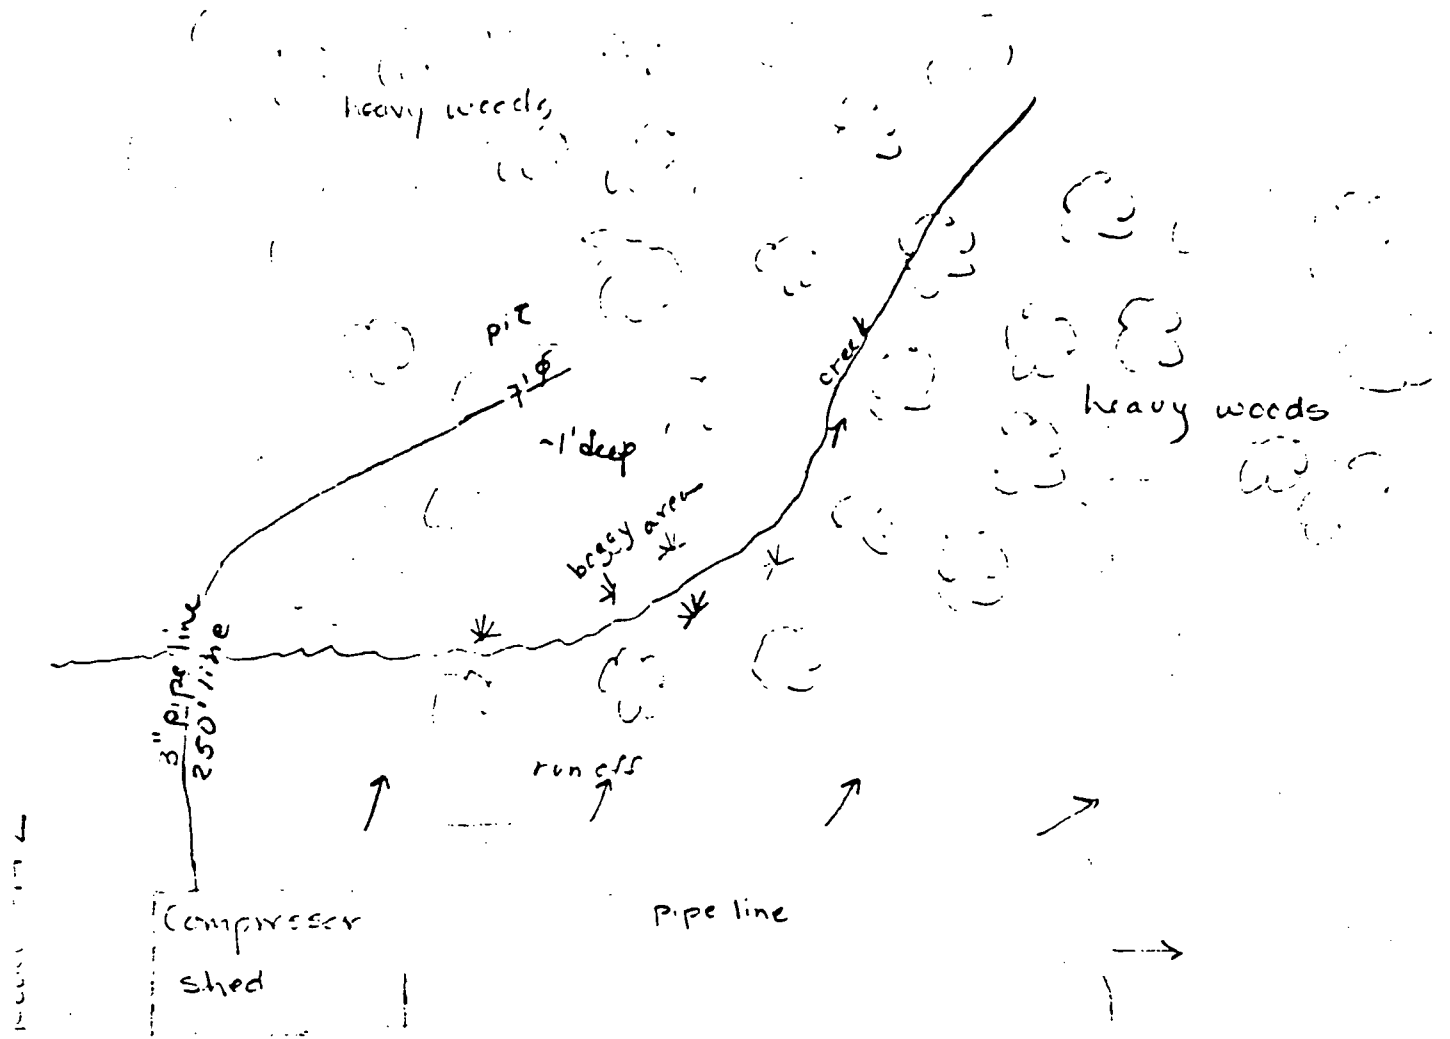 heavy woods
pit
7'ø
~1' deep
creek
heavy woods
boggy area
3" pipe line
250' line
runoff
Compressor
shed
pipe line